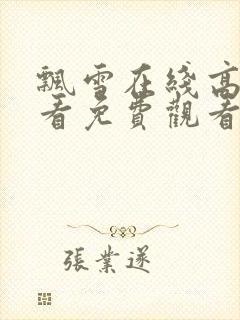 飄雪在綫高
看免費觀看
張業遂